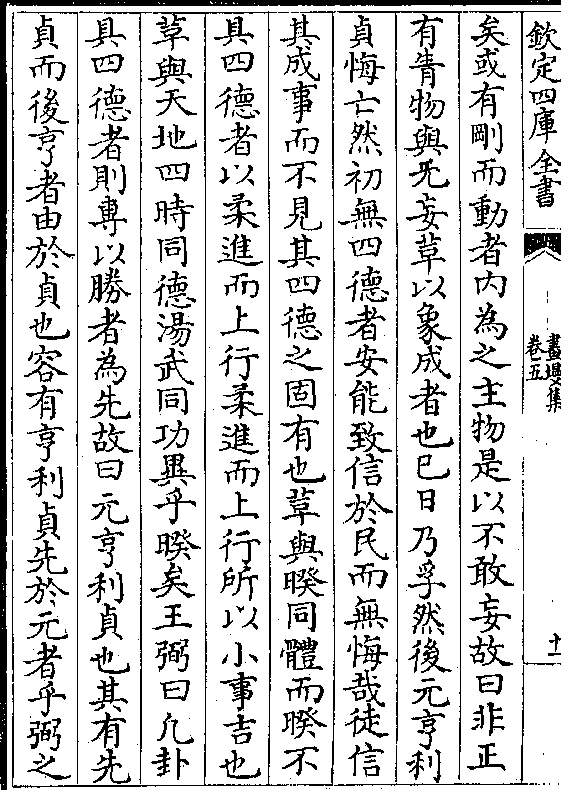 欽定四庫全書
畫墁集
卷五
十一
矣或有剛而動者内為之主物是以不敢妄故曰非正
有眚物與无妄草以象成者也巳日乃孚然後元亨利
貞悔亡然初無四德者安能致信於民而無悔哉徒信
其成事而不見其四德之固有也草與暌同體而暌不
具四德者以柔進而上行柔進而上行所以小事吉也
草與天地四時同德湯武同功異乎暌矣王弼曰凡卦
具四德者則專以勝者為先故曰元亨利貞也其有先
貞而後亨者由於貞也容有亨利貞先於元者乎弼之